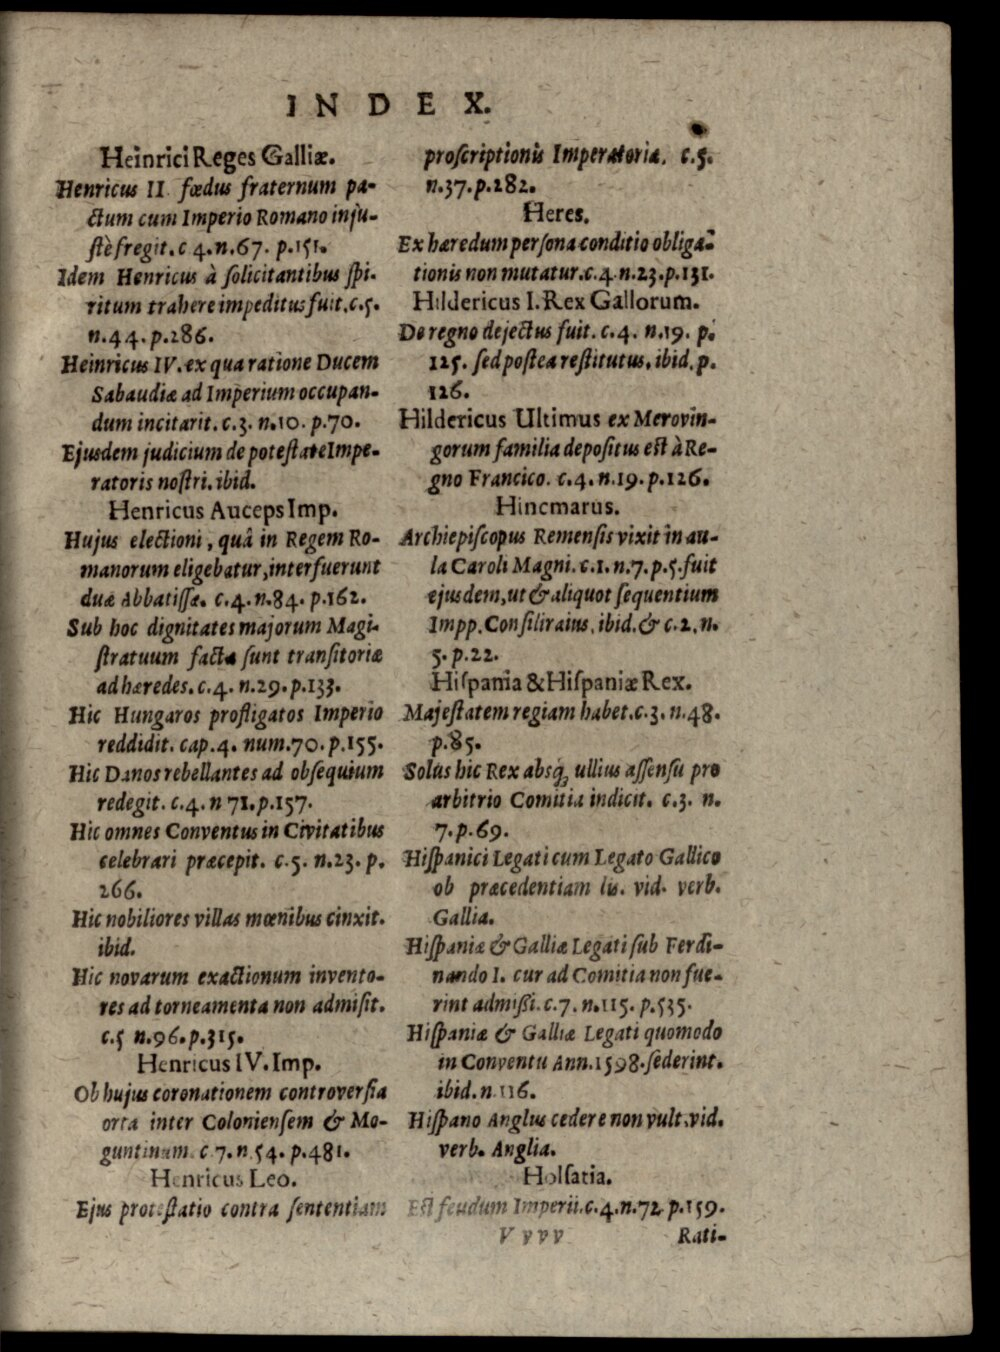 INDEX.
Heinrici Reges Galliæ.
Henricus II fœdus fraternum pa-
ctum cum Imperio Romano inju-
stè fregit. c 4. n. 67. p. 151.
Idem Henricus à solicitantibus spi-
ritum trahere impeditus fuit. c. 5.
n. 44. p. 286.
Heinricus IV. ex qua ratione Ducem
Sabaudiæ ad Imperium occupan-
dum incitarit. c. 3. n. 10. p. 70.
Ejusdem judicium de potestate Impe-
ratoris nostri. ibid.
Henricus Auceps Imp.
Hujus electioni, quâ in Regem Ro-
manorum eligebatur, interfuerunt
duæ Abbatissæ. c. 4. n. 84. p. 162.
Sub hoc dignitates majorum Magi-
stratuum factæ sunt transitoriæ
ad hæredes. c. 4. n. 29. p. 133.
Hic Hungaros profligatos Imperio
reddidit. cap. 4. num. 70. p. 155.
Hic Danos rebellantes ad obsequium
redegit. c. 4. n 71. p. 157.
Hic omnes Conventus in Civitatibus
celebrari præcepit. c. 5. n. 23. p.
266.
Hic nobiliores villas mœnibus cinxit.
ibid.
Hic novarum exactionum invento-
res ad torneamenta non admisit.
c. 5 n. 96. p. 315.
Henricus IV. Imp.
Ob hujus coronationem controversia
orta inter Coloniensem & Mo-
guntinum. c 7. n. 54. p. 481.
Henricus Leo.
Ejus protestatio contra sententiam
proscriptionis Imperatoriæ. c. 5.
n. 37. p. 282.
Heres.
Ex hæredum persona conditio obliga-
tionis non mutatur. c. 4. n. 23. p. 131.
Hildericus I. Rex Gallorum.
De regno dejectus fuit. c. 4. n. 19. p.
125. sed postea restitutus. ibid. p.
126.
Hildericus Ultimus ex Merovin-
gorum familia depositus est à Re-
gno Francico. c. 4. n. 19. p. 126.
Hincmarus.
Archiepiscopus Remensis vixit in au-
la Caroli Magni. c. 1. n. 7. p. 5. fuit
ejusdem, ut & aliquot sequentium
Impp. Consiliraius, ibid. & c. 2. n.
5. p. 22.
Hispania & Hispaniæ Rex.
Majestatem regiam habet. c. 3. n. 48.
p. 85.
Solus hic Rex absq; ullius assensu pro
arbitrio Comitia indicit. c. 3. n.
7. p. 69.
Hispanici Legati cum Legato Gallico
ob præcedentiam lis. vid. verb.
Gallia.
Hispaniæ & Galliæ Legati sub Ferdi-
nando I. cur ad Comitia non fue-
rint admissi. c. 7. n. 115. p. 535.
Hispaniæ & Galliæ Legati quomodo
in Conventu Ann. 1598. sederint.
ibid. n 116.
Hispano Anglus cedere non vult. vid.
verb. Anglia.
Holsatia.
Est feudum Imperii. c. 4. n. 72. p. 159.
V v v v
Rati-